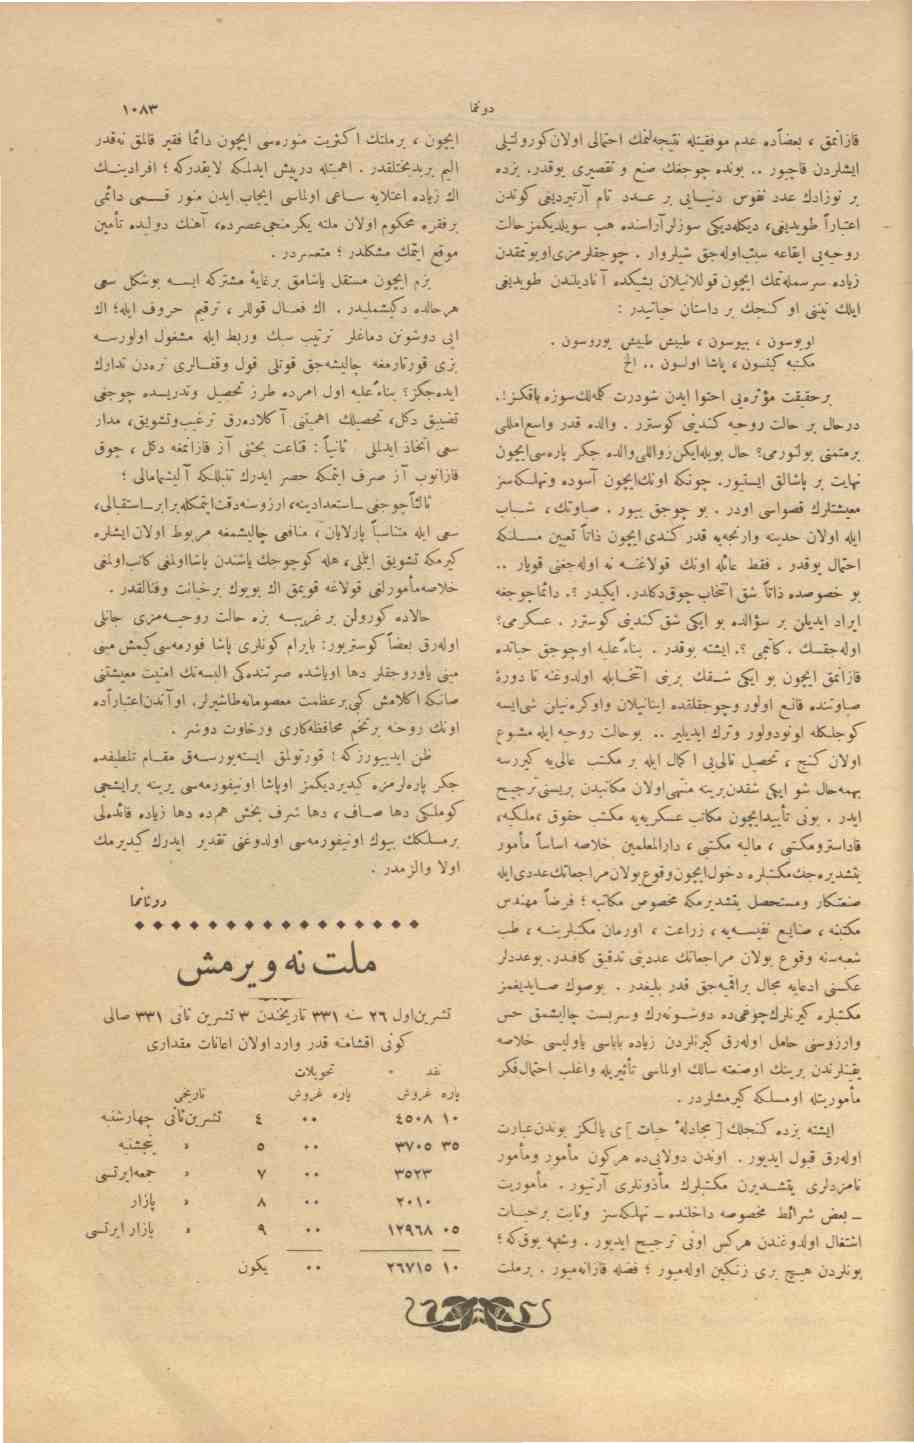 دونما
١٠٨٣
قازانمق ، بعضاًده عدم موفقيتله نتيجه‌لنمك احتمالى اولان كورولتيلى
ايشلردن قاچيور .. بونده چوجغك صنع و تقصيرى يوقدر. بزده
بر نوزادك عدد نفوس دنيا‌يى بر عدد تام آرتيرديغى كوندن
اعتباراً طويديغى، ديكله‌ديكى سوزلر آراسنده هپ سويلديكمز حالت
روحيه‌يى ايقاعه سبب اوله‌جق شيلر وار . چوجقلرمزى اويوتمقدن
زياده سرسمله‌تمك ايچون قوللانيلان بشيكده آناديلندن طويديغى
ايلك نينى او كنجك بر داستان حياتيدر :
اويوسون ، بيوسون ، طيش طيش يوروسون .
مكتبه كيتسون ، پاشا اولسون .. الخ
برحقيقت مؤثره‌يى احتوا ايدن شودرت كله‌لك سوزه باقكز!.
درحال بر حالت روحيه كندينى كوسترر . والده قدر واسع امللى
برمتمنى بولنورمى؟ حال بويله‌ايكن زواللى والده جكر پاره‌سى ايچون
نهايت بر پاشالق ايستيور. چونكه اونك ايچون آسوده وتهلكه‌سز
معيشتلرك قصواسى اودر . بو چوجق بيور . صباوتك ، شباب
ايله اولان حدينه وارنجه‌يه قدر كندى ايچون ذاتاً تعيين مسلكه
احتمال يوقدر . فقط عائله اونك قولاغنه نه اوله‌جغنى قويار ..
بو خصوصده ذاتاً شق انتخاب چوق دكلدر. ايكيدر ؟. دائما چوجغه
ايراد ايديلن بر سؤالده بو ايكى شق كندينى كوسترر . عسكرمى؟
اوله‌جقسك . كاتبمى ؟. ايشته بوقدر . بناءً عليه اوچوجق حياتده
قازانمق ايچون بو ايكى شقك برينى انتخابله اولدوغنه تا دورهٔ
صباوتنده قانع اولور وچوجقلقده اينانيلان واوكره‌نيلن شى ايسه
كوجلكله اونودولور وترك ايديلير .. بوحالت روحيه ايله مشبوع
اولان كنج ، تحصيل تالى‌يى اكمال ايله بر مكتب عالى‌يه كيررسه
بهمه‌حال شو ايكى شقدن برينه منتهى اولان مكاتبدن بريسنى ترجيح
ايدر . بونى تأييد ايچون مكاتب عسكريه‌يه مكتب حقوق ،ملكيه،
قاداسترو مكتبى ، ماليه مكتبى ، دارالمعلمين خلاصه اساساً مأمور
يتشديره‌جك مكتبلره دخول ايچون وقوع بولان مراجعاتك عددى ايله
صنعتكار ومستحصل يتشديرمكه مخصوص مكاتبه ؛ فرضاً مهندس
مكتبنه ، صنايع نفيسه‌يه ، زراعت ، اورمان مكتبلرينه ، طب
شعبه‌سنه وقوع بولان مراجعاتك عددينى تدقيق كافيدر. بوعددلر
عكسنى ادعايه مجال براقميه‌جق قدر بليغدر . بوصوك صايديغمز
مكتبلره كيرنلرك چوغى ده دوشونه‌رك وسربست چاليشمق حس
وارزوسنى حامل اوله‌رق كيرنلردن زياده باباسى ياوليسى خلاصه
يقينلرندن برينك اوصنعته سالك اولماسى تأثيريله واغلب احتمال فكر
مأموريتله اومسلكه كيرمشلردر .
ايشته بزده كنجلك [ مجادلهٔ حيات ] ى يالكز بوندن عبارت
اوله‌رق قبول ايديور . اوندن دولايى ده هركون مأمور ومأمور
نامزدلرى يتشديرن مكتبلرك مأذونلرى آرتيور . مأموريت
ـ بعض شرائط مخصوصه داخلنده ـ تهلكه‌سز وثابت برحيات
اشتغال اولدوغندن هركس اونى ترجيح ايديور . وشبهه يوق كه ؛
بونلردن هيچ برى زنكين اوله‌ميور ؛ فضله قازانه‌ميور . برملت
ايچون ، برملتك اكثريت منوره‌سى ايچون دائما فقير قالمق نه‌قدر
اليم بربدبختلقدر . اهميتله درپيش ايدلمكه لايقدركه ؛ افرادينك
اك زياده اعتلايه ساعى اولماسى ايجاب ايدن منور قسمى دائمى
برفقره محكوم اولان ملته يكرمنجى عصرده، آهنك دوليده تأمين
موقع ايتمك مشكلدر ؛ متعسردر .
بزم ايچون مستقل ياشامق برغايهٔ مشتركه ايسه بوشكل سعى
هرحالده دكيشمليدر . اك فعال قوللر ، ترقيم حروف ايله؛ اك
ايى دوشونن دماغلر ترتيب سبك وربط ايله مشغول اولورسه
بزى قورتارمغه چاليشه‌جق قوتلى قول وقفالرى نره‌دن تدارك
ايده‌جكز؟ بناءً عليه اول امرده طرز تحصيل وتدريسده چوجغى
تضييق دكل، تحصيلك اهميتنى آكلاده‌رق ترغيب وتشويق، مدار
سعى اتخاذ ايدلملى . ثانياً : قناعت بحثنى آز قازانمغه دكل ، چوق
قازانوب آز صرف ايتمكه حصر ايدرك تنبللكه آليشمامالى ؛
ثالثاً چوجغى ـ استعدادينه، ارزوسنه دقت ايتمكله برابر ـ استقبالى،
سعى ايله متناسباً پارلايان ، منافعى چاليشمغه مربوط اولان ايشلره
كيرمكه تشويق ايتملى، هله كوچوجك ياشندن پاشا اولمغى كاتب اولمغى
خلاصه مأمورلغى قولاغه قويمق اك بويوك برخيانت وفنالقدر .
حالاده كورولن بر غريبه بزه حالت روحيه‌مزى جانلى
اوله‌رق بعضاً كوستريور: بايرام كونلرى پاشا فورمه‌سى كيمش مينى
مينى ياوروجقلر دها اوياشده صرتنده‌كى البسه‌نك امنيت معيشتنى
صانكه اكلامش كبى برعظمت معصومانه طاشيرلر. اوآندن اعتباراًده
اونك روحنه برتخم محافظه‌كارى ورخاوت دوشر .
ظن ايدييورزكه ؛ قورتولمق ايسته‌يورسه‌ق مقام تلطيفده
جكر پاره‌لرمزه كيديرديكمز اوپاشا اونيفورمه‌سى يرينه برايشجى
كوملكى دها صاف ، دها شرف بخش هم‌ده دها زياده فائده‌لى
برمسلكك بيوك اونيفورمه‌سى اولدوغنى تقدير ايدرك كيديرمك
اولا والزمدر .
دونانما
ملت نه ويرمش
تشرين اول ٢٦ سنه ٣٣١ تاريخندن ٣ تشرين ثانى ٣٣١ صالى
كونى اقشامنه قدر وارد اولان اعانات مقدارى
نقد تحويلات
پاره غروش پاره غروش تاريخى
١٠ ٤٥٠٨ ٠٠ ٤ تشرين‌ثانى چهارشنبه
٣٥ ٣٧٠٥ ٠٠ ٥ » پنجشنبه
٣٥٢٣ ٠٠ ٧ » جمعه‌ايرتسى
٢٠١٠ ٠٠ ٨ » پازار
٠٥ ١٢٩٦٨ ٠٠ ٩ » پازار ايرتسى
١٠ ٢٦٧١٥ ٠٠ يكون